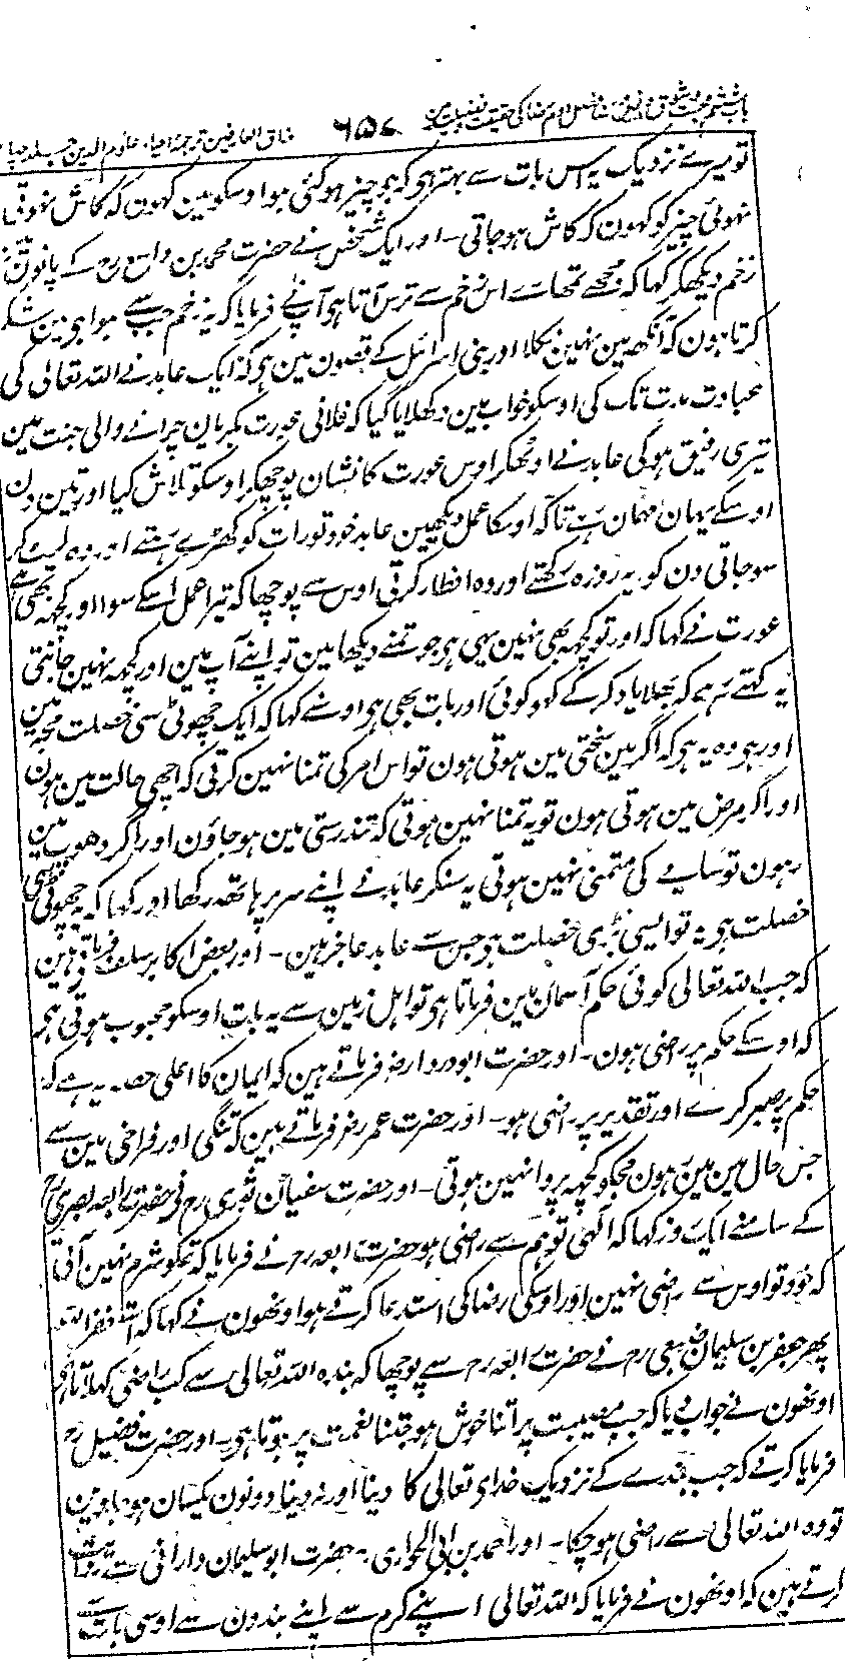 باب ششم محبت و شوق و انس و رضا کی حقیقت ۶۵۷ مذاق العارفین ترجمہ احیاء علوم الدین جلد چہارم
تو میرے نزدیک یہ اس بات سے بہتر ہی کہ جو چیز ہو گئی ہو اوسکو مین کہون کہ کاش نہوتی
نہوئی چیز کو کہون کہ کاش ہو جاتی۔ اور ایک شخص نے حضرت محمد بن واسع رح کے پانون مین
زخم دیکھکر کہا کہ مجھے تمھارے اس زخم سے ترس آتا ہی آپ نے فرمایا کہ یہ زخم جب سے ہوا ہی مین شکر
کرتا ہون کہ آنکھہ مین نہین نکلا اور بنی اسرائیل کے قصون مین ہی کہ ایک عابد نے اللہ تعالی کی
عبادت مدت تک کی اوسکو خواب مین دکھلایا گیا کہ فلانی عورت بکریان چرانے والی جنت مین
تیری رفیق ہوگی عابد نے اوٹھکر اوس عورت کا نشان پوچھکر اوسکو تلاش کیا اور تین دن
اوسکے یہان مہمان رہے تاکہ اوسکا عمل دیکھین عابد خود تو رات کو کھڑے رہتے اور وہ لیٹ کر
سو جاتی دن کو یہ روزہ رکھتے اور وہ افطار کرتی اوس سے پوچھا کہ تیرا عمل اسکے سوا اور کچھہ بھی ہے
عورت نے کہا کہ اور تو کچھہ بھی نہین یہی ہی جو تمنے دیکھا مین تو اپنے آپ مین اور کچھہ نہین جانتی
یہ کہتے رہے کہ بھلا یاد کر کے کہو کوئی اور بات بھی ہی اوسنے کہا کہ ایک چھوٹی سی خصلت مجھہ مین
اور ہی وہ یہ ہی کہ اگر مین سختی مین ہوتی ہون تو اس امر کی تمنا نہین کرتی کہ اچھی حالت مین ہون
اور اگر مرض مین ہوتی ہون تو یہ تمنا نہین ہوتی کہ تندرستی مین ہو جاؤن اور اگر دھوپ مین
رہون تو سایے کی متمنی نہین ہوتی یہ سنکر عابد نے اپنے سر پر ہاتھہ رکھا اور کہا کہ یہ چھوٹی سی
خصلت ہی یہ تو ایسی بڑی خصلت ہی جس سے عابد عاجز ہین۔ اور بعض اکابر سلف فرماتے ہین
کہ جب اللہ تعالی کوئی حکم آسمان مین فرماتا ہی تو اہل زمین سے یہ بات اوسکو محبوب ہوتی ہی
کہ اوسکے حکم پر راضی ہون۔ اور حضرت ابودردا رضہ فرماتے ہین کہ ایمان کا اعلی حصہ یہ ہے کہ
حکم پر صبر کرے اور تقدیر پر راضی ہو۔ اور حضرت عمر رضہ فرماتے ہین کہ تنگی اور فراخی مین سے
جس حال مین مین ہون مجکو کچھہ پروا نہین ہوتی۔ اور حضرت سفیان ثوری رح نے حضرت رابعہ بصری رح
کے سامنے ایک روز کہا کہ الٰہی تو ہم سے راضی ہو حضرت رابعہ رح نے فرمایا کہ تمکو شرم نہین آتی
کہ خود تو اوس سے راضی نہین اور اوسکی رضا کی استدعا کرتے ہو اونھون نے کہا کہ استغفر اللہ
پھر جعفر بن سلیمان ضبعی رح نے حضرت رابعہ رح سے پوچھا کہ بندہ اللہ تعالی سے کب راضی کہلاتا ہی
اونھون نے جواب دیا کہ جب مصیبت پر اتنا خوش ہو جتنا نعمت پر ہوتا ہی۔ اور حضرت فضیل رح
فرمایا کرتے کہ جب بندے کے نزدیک خدای تعالی کا دینا اور نہ دینا دونون یکسان ہو جاوین
تو وہ اللہ تعالی سے راضی ہو چکا۔ اور احمد بن ابی الحواری۔ حضرت ابو سلیمان دارانی سے روایت
کرتے ہین کہ اونھون نے فرمایا کہ اللہ تعالی اپنے کرم سے اپنے بندون سے اوسی بات